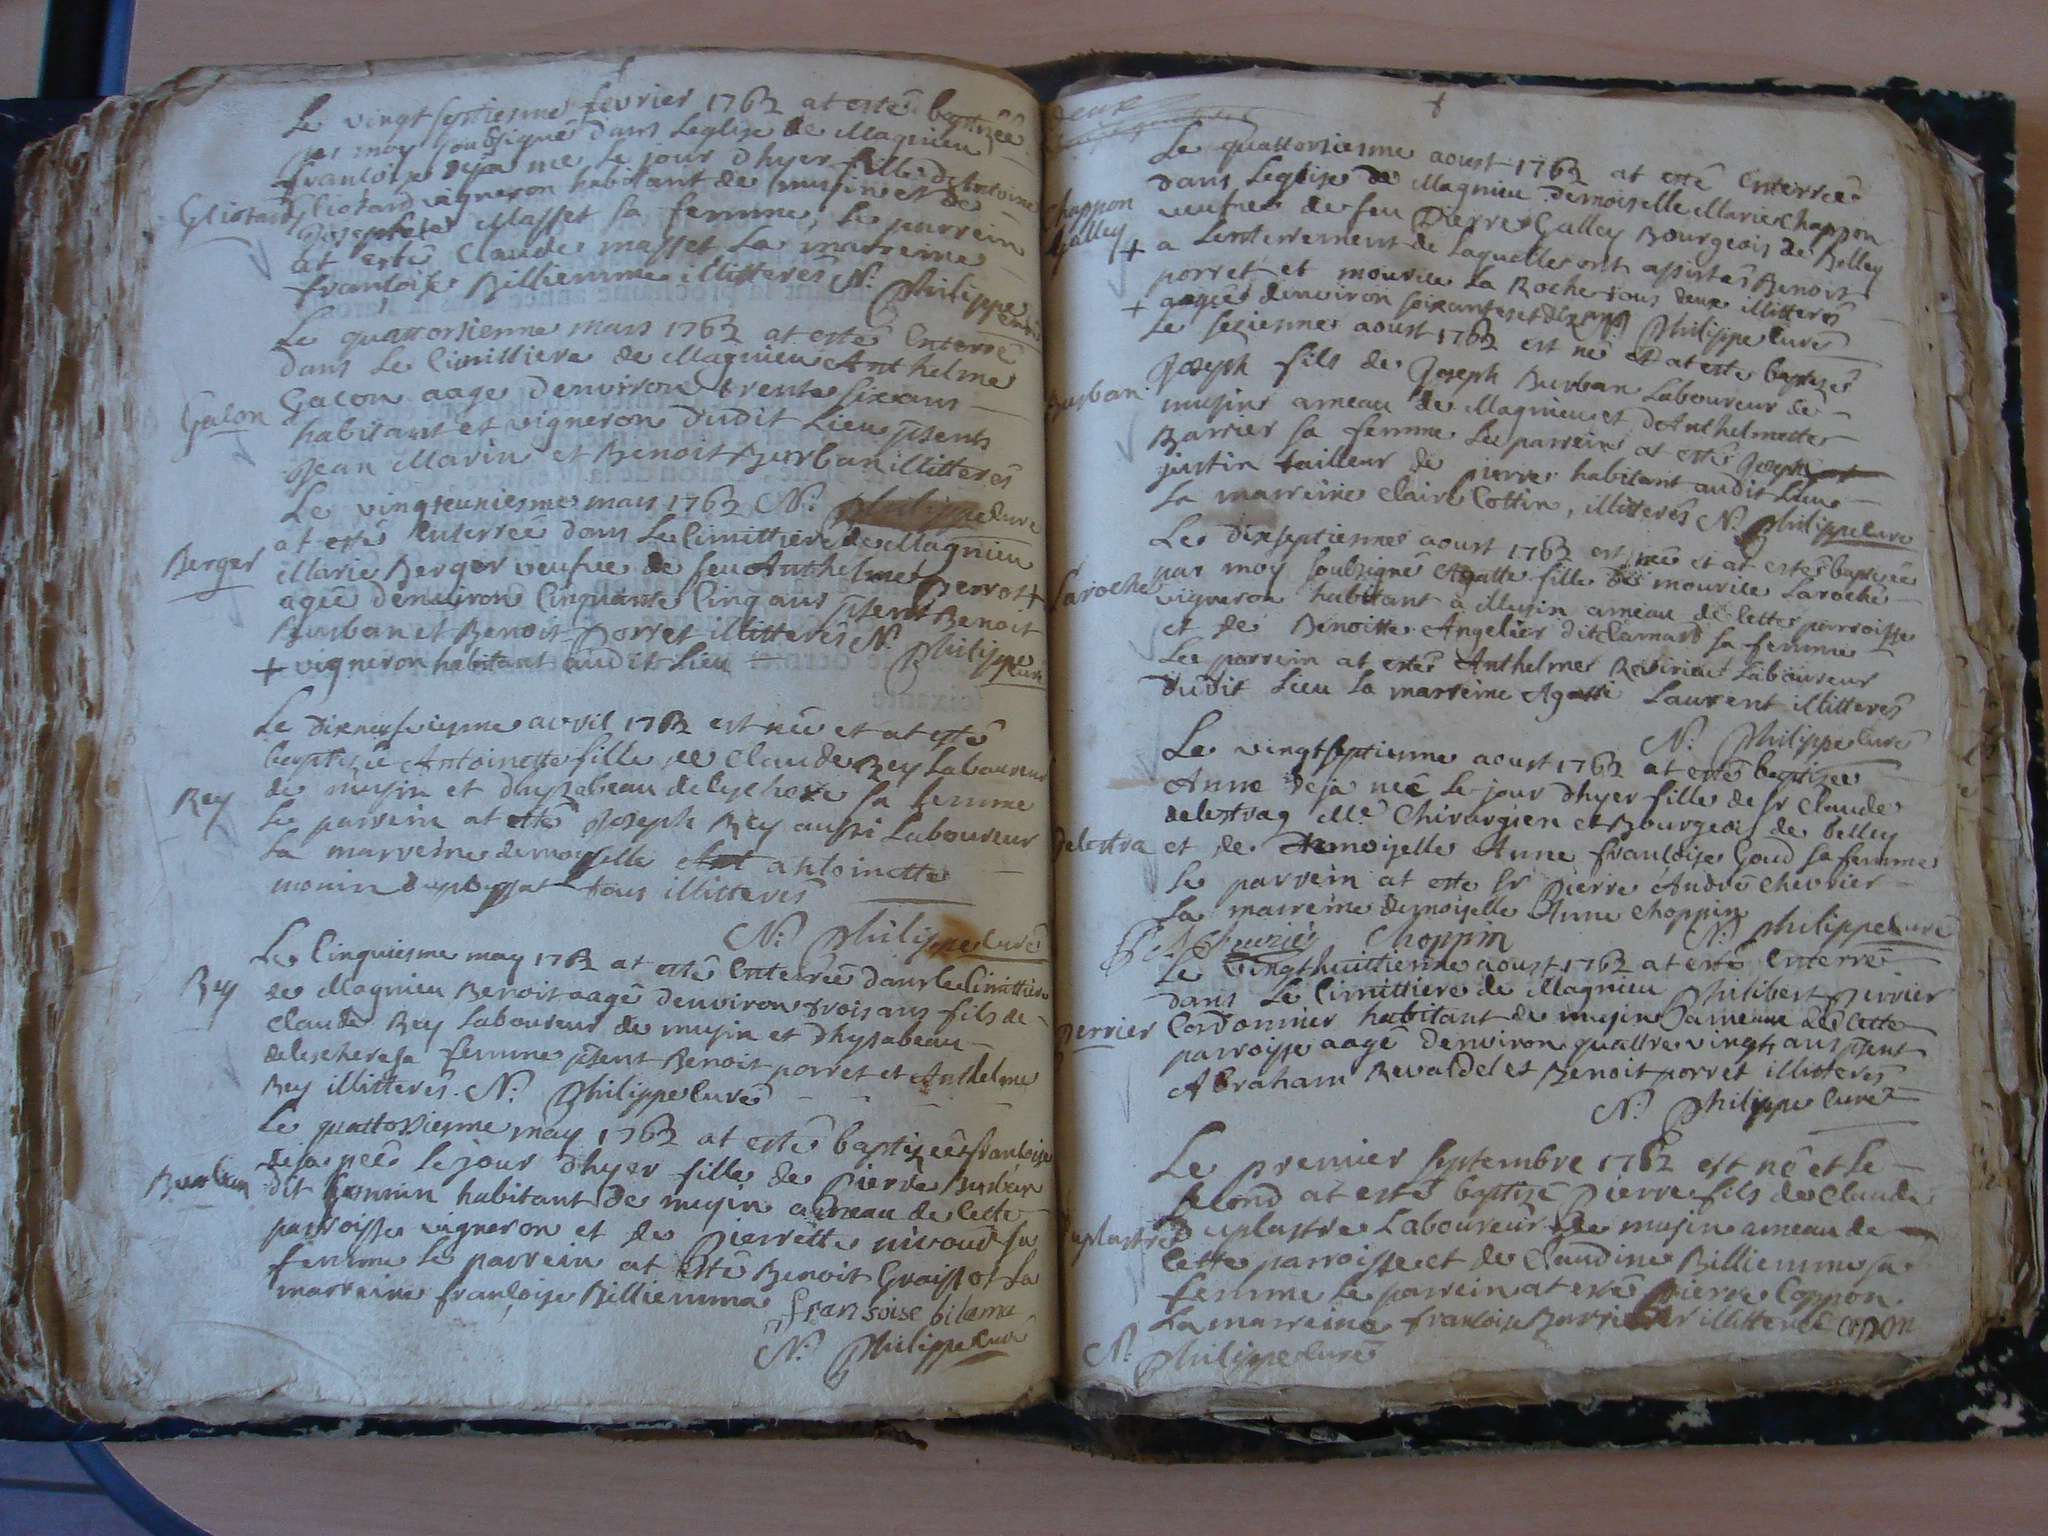 Le vingt septiesme fevrier 1762 at esté baptizée
par moy soubsigné dans Leglise de Magnieu
francoise deja née le jour dhyer fille dAntoine
Gliotard
Gliotard vigneron habitant de musin et de
Josephete Masset sa femme, le parrein
at esté Claude masset La marreine
francoise Billiemme illitterés N. Philippe curé
Le quattorsieme mars 1762 at esté Enterré
dans Le Cimittiere de Magnieu Anthelme
Gacon
Gacon aage denviron trente six ans
habitant et vigneron dudit Lieu pnts
Jean Marin et Benoit Burban illitterés
Le vingteuniesme mars 1762 N. Philippe curé
at esté Enterrée dans Le Cimittiere de Magnieu
Berger
Marie Berger veufue de feu Anthelme Perrot +
agée denviron Cinquante Cinq ans pnts Benoit
Burban et Benoit Porret illitterés N. Philippe
+ vigneron habitant audit Lieu curé
Le dixneufviesme avril 1762 est née et at esté
baptizée Antoinette fille de Claude Rey Laboureur
Rey
de musin et dhysabeau deleschere sa femme
Le parrein at esté Joseph Rey aussi Laboureur
La marreine demoyselle antoinette
monin tous illitterés
N. Philippe curé
Rey
Le Cinquiesme may 1762 at esté Enterré dans le Cimittiere
de Magnieu Benoit aagé denviron trois ans fils de
Claude Rey Laboureur de musin et dhysabeau
delescheresa femme pnts Benoit porret et Anthelme
Rey illitterés. N. Philippe curé
Le quattorsieme may 1762 at esté baptizée francoise
deja née le jour dhyer fille de Pierre Burban
Burban
dit habitant de musin ameau de Cette
parroisse vigneron et de Pierrette nivoud sa
femme Le parrein at esté Benoit Graissot La
marreine francoise Billiemma fransoise bilema
N. Philippe curé
deux
Le quattorsiesme aoust 1762 at esté Enterrée
dans Leglise de Magnieu Demoiselle Marie Chappon
chappon
Galley
veufue de feu Pierre Galley Bourgeois de Belley
+ a Lenterrement de Laquelle ont assistés Benoit
porret et mourice La Roche tous deux illitterés
+ aagée denviron soixante et dix ans N. Philippe curé
Le seziesme aoust 1762 est né et at esté baptizé
Joseph fils de Joseph Burban Laboureur de
Burban
musin ameau de Magnieu et dAnthelmette
Barrier sa femme Le parrein at esté Joseph
justin tailleur de pierre habitant audit Lieu
La marreine Claire Cottin, illitterés N. Philippe curé
Le dixseptiesme aoust 1762 est née et at esté baptizée
par moy soubsigné Agatte fille de mourice Laroche
Laroche
vigneron habitant a Musin ameau de Cette parroisse
et de Benoitte Angelier dit Camard sa femme
Le parrein at esté Anthelme Revirieu Laboureur
dudit Lieu La marreine Agatte Laurent illitterés
N. Philippe curé
Le vingtseptiesme aoust 1762 at esté baptizée
Anne deja née Le jour dhyer fille de Sr Claude
delestrag Me Chirurgien et Bourgeois de Belley
Delestra
et de demoiselle Anne francoise Goud sa femme
Le parrein at esté Sr Pierre André Chevrier
La marreine demoiselle Anne Choppin
Chevrier Choppin N. Philippe curé
Le vingthuittiesme aoust 1762 at esté Enterré
dans Le Cimittiere de Magnieu Philibert Perrier
Perrier
Cordonnier habitant de musin ameau de Cette
parroisse aagé denviron quattre vingts ans pnts
Abraham Revaldel et Benoit porret illitterés
N. Philippe curé
Le premier septembre 1762 est né et Le
second at esté baptizé Pierre fils de Claude
uplastre
Duplastre Laboureur de musin ameau de
Cette parroisse et de Claudine Billiemme sa
femme Le parrein at esté Pierre Coppon
La marreine francoise Barrier illitterée copon
N. Philippe curé